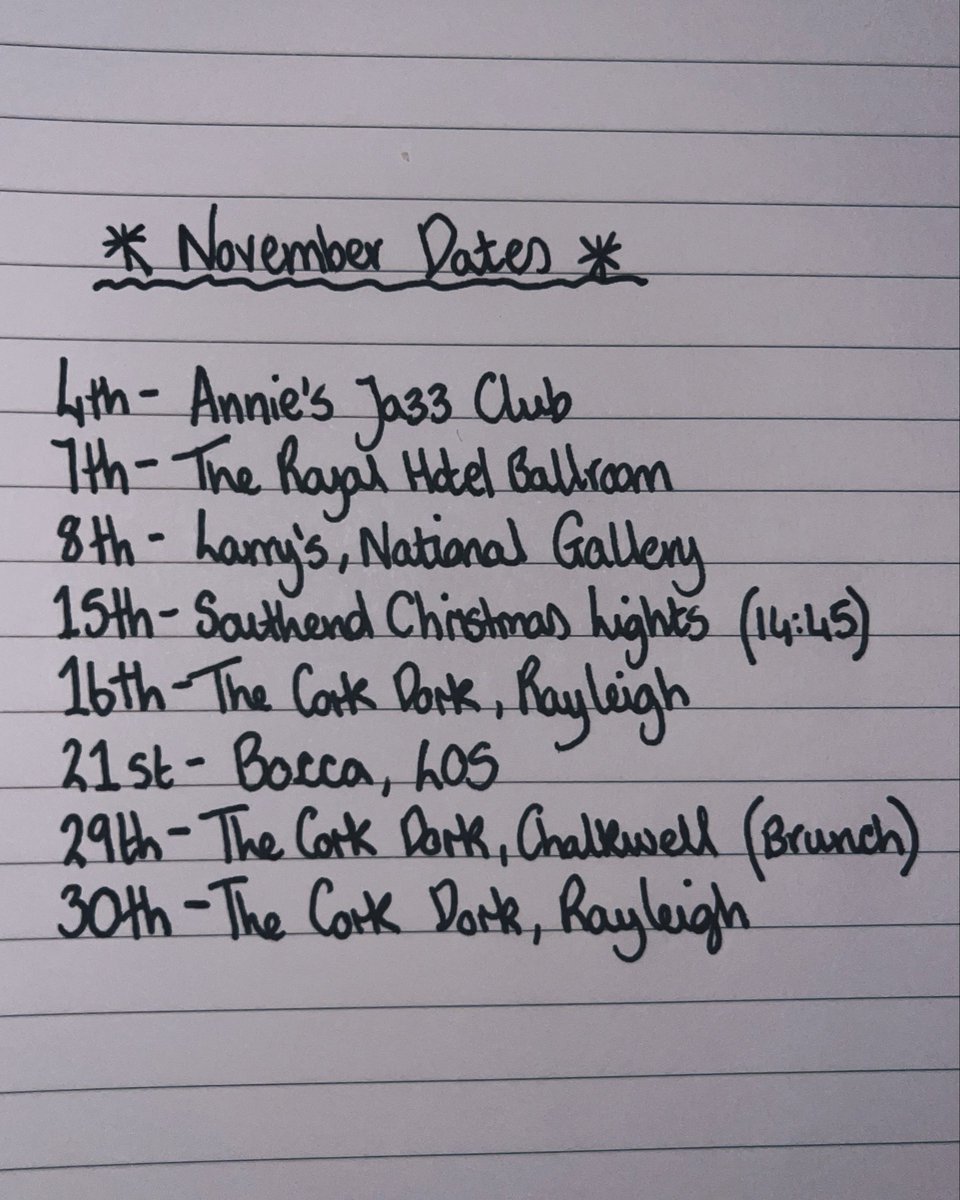 * November Dates *
4th - Annie's Jazz Club
7th - The Royal Hotel Ballroom
8th - Larry's, National Gallery
15th - Southend Christmas Lights (14:45)
16th - The Cork Dork, Rayleigh
21st - Bocca, LOS
29th - The Cork Dork, Chalkwell (Brunch)
30th - The Cork Dork, Rayleigh